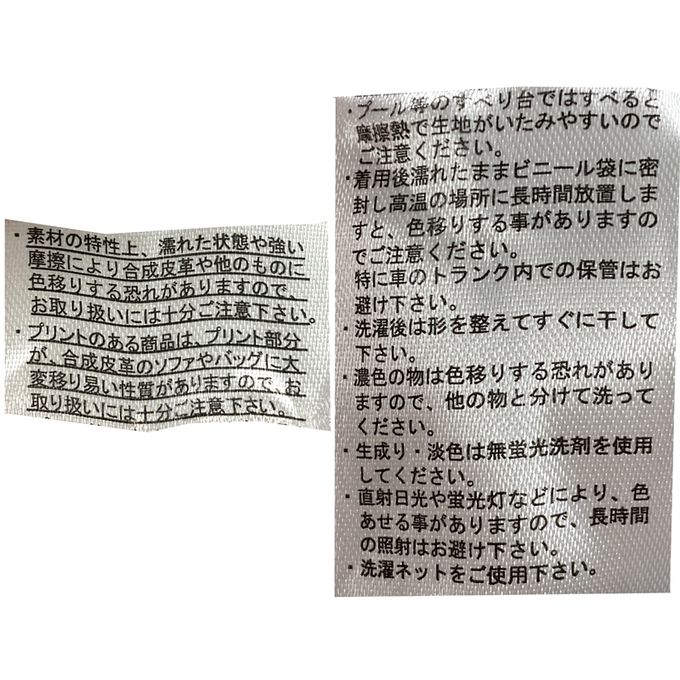 ・素材の特性上、濡れた状態や強い
摩擦により合成皮革や他のものに
色移りする恐れがありますので、
お取り扱いには十分ご注意下さい。
・プリントのある商品は、プリント部分
が、合成皮革のソファやバッグに大
変移り易い性質がありますので、お
取り扱いには十分ご注意下さい。
・プール等のすべり台ではすべると
摩擦熱で生地がいたみやすいので
ご注意ください。
・着用後濡れたままビニール袋に密
封し高温の場所に長時間放置しま
すと、色移りする事がありますの
でご注意ください。
特に車のトランク内での保管はお
避け下さい。
・洗濯後は形を整えてすぐに干して
下さい。
・濃色の物は色移りする恐れがあり
ますので、他の物と分けて洗って
ください。
・生成り・淡色は無蛍光洗剤を使用
してください。
・直射日光や蛍光灯などにより、色
あせる事がありますので、長時間
の照射はお避け下さい。
・洗濯ネットをご使用下さい。